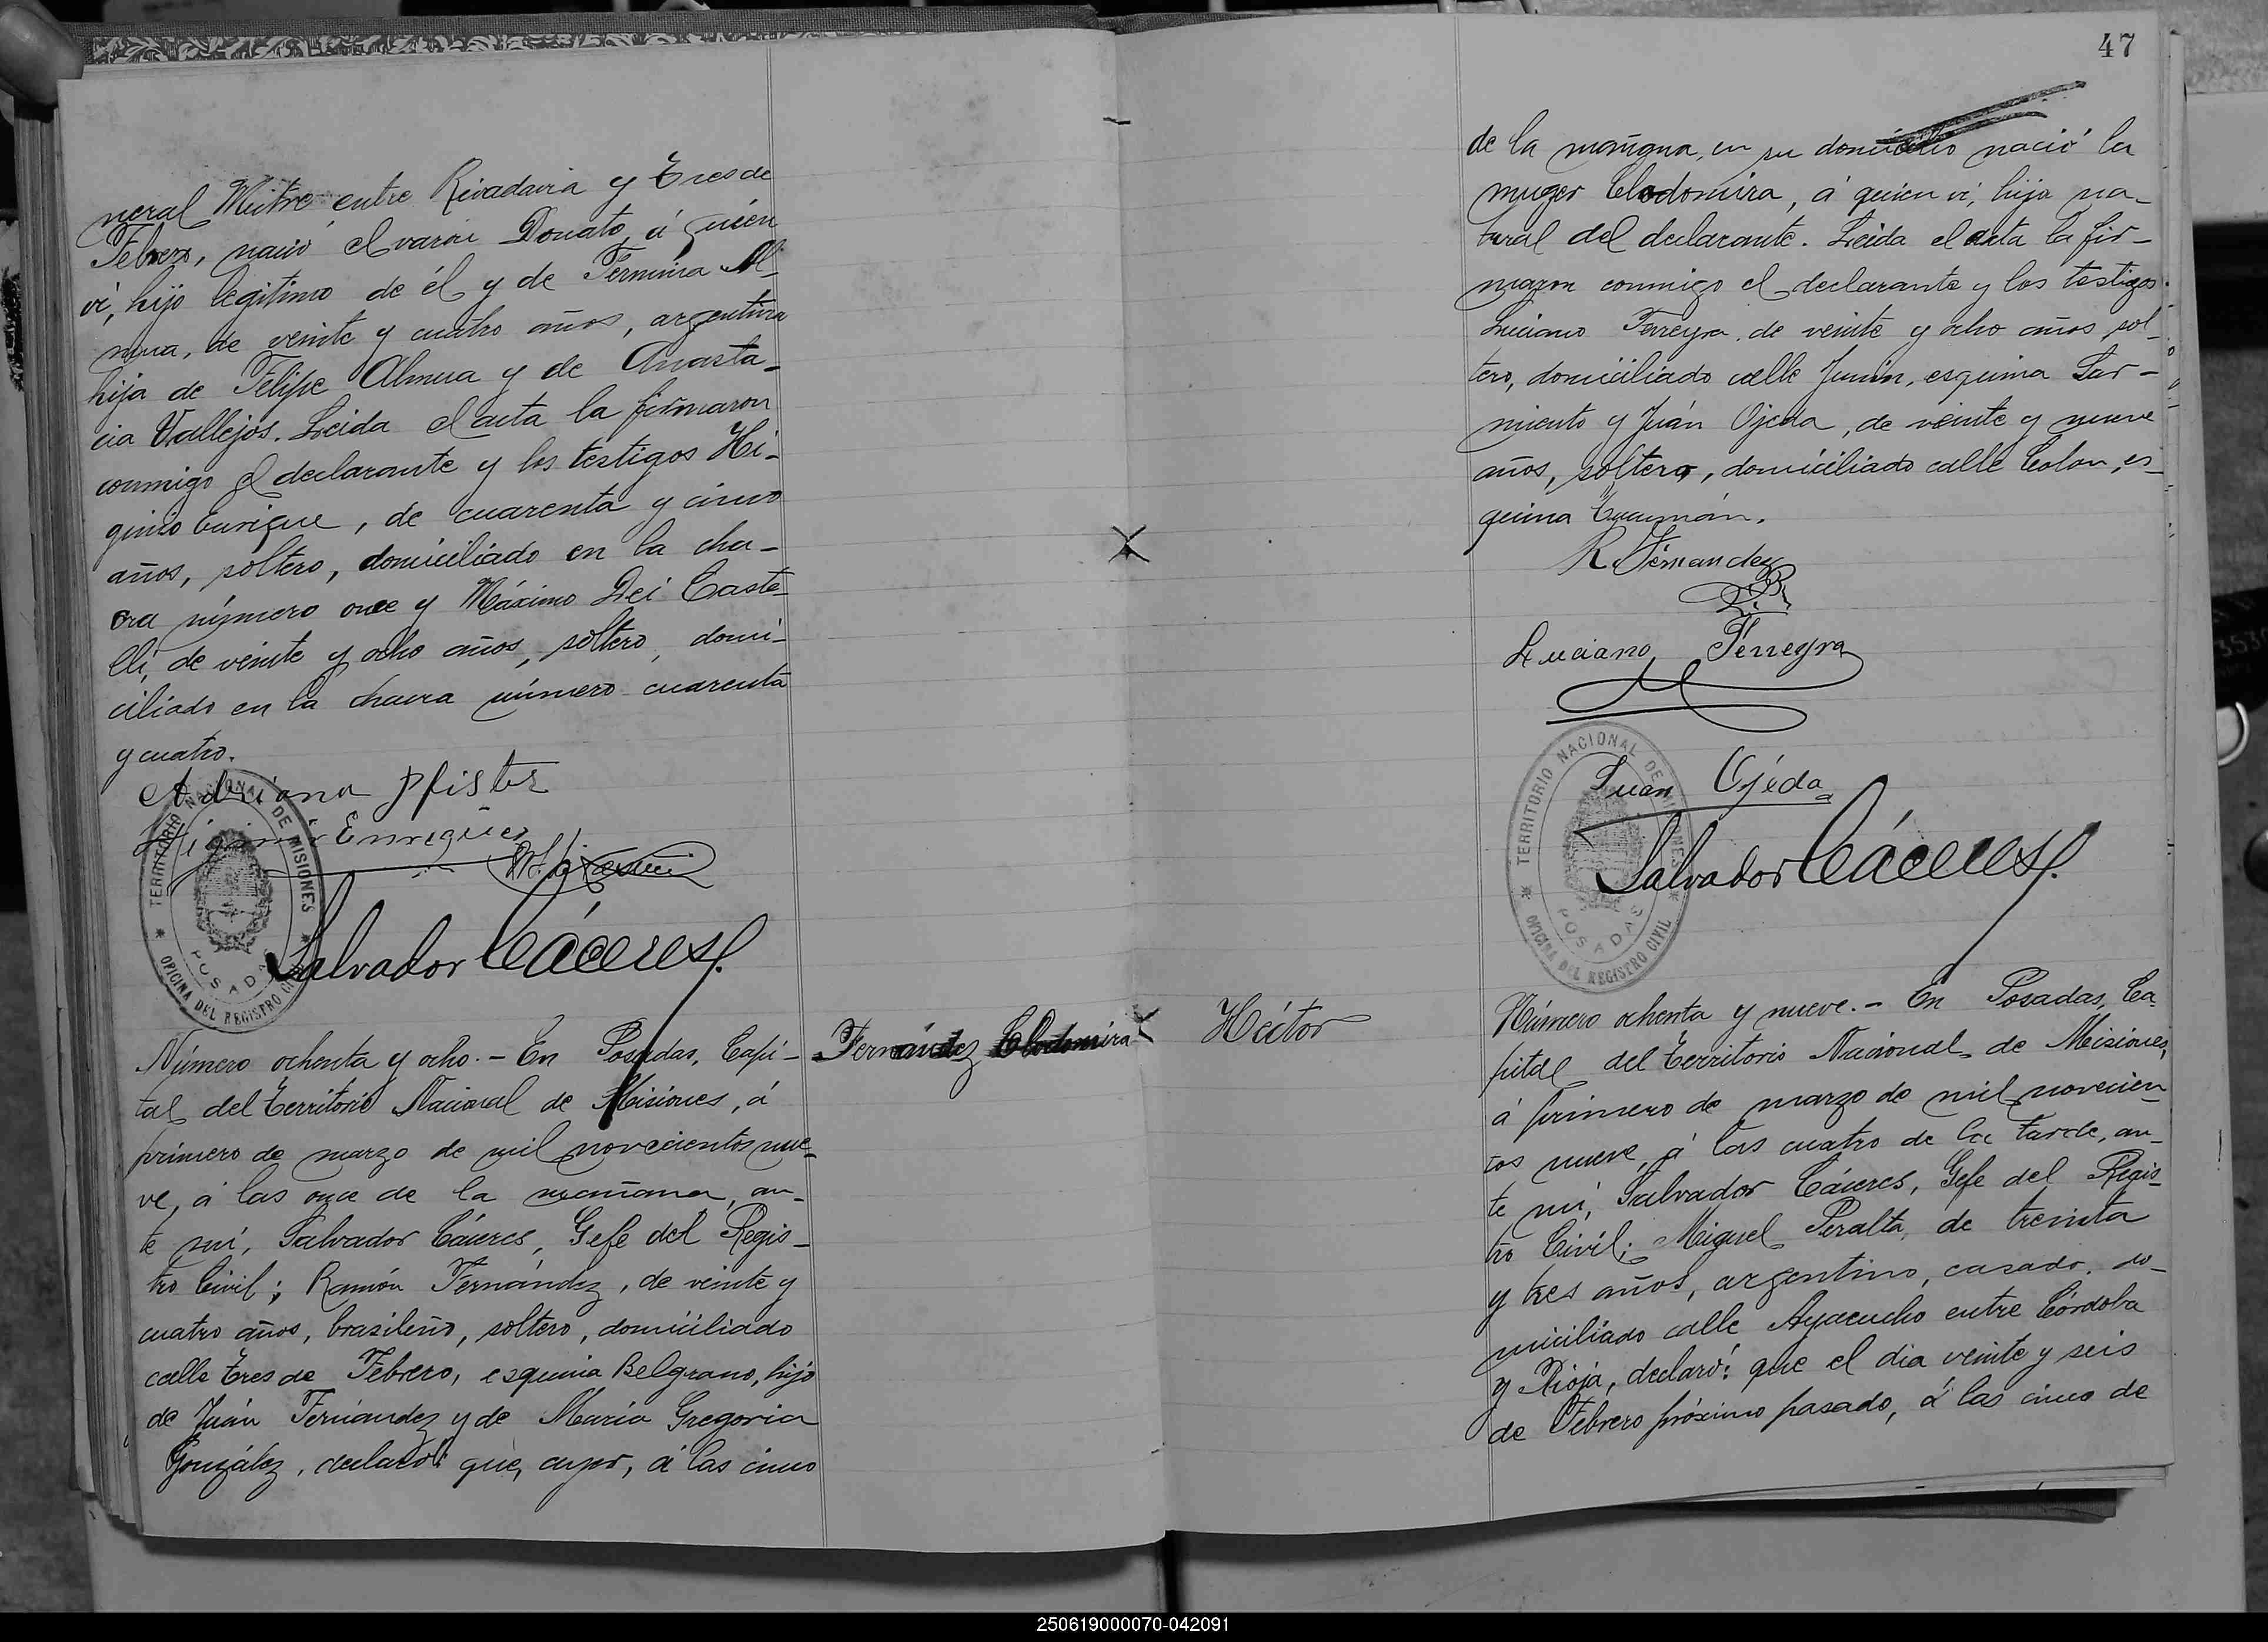 neral Mitre entre Rivadavia y Tres de
Febrero, nació el varón Donato, á quién
ví, hijo legitimo de él y de Fermina Al-
mua, de veinte y cuatro años, argentina
hija de Felipe Almua y de Anasta-
cia Vallejos. Leida el acta la firmaron
conmigo el declarante y los testigos Hi-
ginio Enrique, de cuarenta y cinco
años, soltero, domiciliado en la cha-
cra número once y Máximo Dei Caste-
lli, de veinte y ocho años, soltero, domi-
ciliado en la chacra número cuarenta
y cuatro.
Adriano Pfister
Higinio Enrriquez
Salvador Cáceres
TERRITORIO NACIONAL DE MISIONES
POSADAS
OFICINA DEL REGISTRO CIVIL
Número ochenta y ocho.- En Posadas, Capi-
tal del Territorio Nacional de Misiones, á
primero de marzo de mil novecientos nue-
ve, á las once de la mañana, an-
te mí, Salvador Cáceres, Gefe del Regis-
tro Civil; Ramón Fernández, de veinte y
cuatro años, brasileño, soltero, domiciliado
calle Tres de Febrero, esquina Belgrano, hijo
de Juán Fernandez y de María Gregoria
González, declaró: que, ayer, á las cinco
Fernández Clodomira
47
de la mañana, en su domicilio nació la
muger Clodomira, á quien ví, hija na-
tural del declarante. Leida el acta la fir-
maron conmigo el declarante y los testigos
Luciano Ferreyra, de veinte y ocho años, sol-
tero, domiciliado calle Junín, esquina Sar-
miento y Juán Ojeda, de veinte y nueve
años, soltero, domiciliado calle Colon, es-
quina Tucumán.
R. Fernandez
Luciano Ferreyra
Juan Ojéda
Salvador Cáceres
TERRITORIO NACIONAL DE MISIONES
POSADAS
OFICINA DEL REGISTRO CIVIL
Héctor
Número ochenta y nueve.- En Posadas, Ca-
pital del Territorio Nacional de Misiones,
á primero de marzo de mil novecien-
tos nueve, á las cuatro de la tarde, an-
te mí, Salvador Cáceres, Gefe del Regis-
tro Civil; Miguel Peralta, de treinta
y tres años, argentino, casado, do-
miciliado calle Ayacucho entre Córdoba
y Rioja, declaró: que el dia veinte y seis
de Febrero próximo pasado, á las cinco de
250619000070-042091